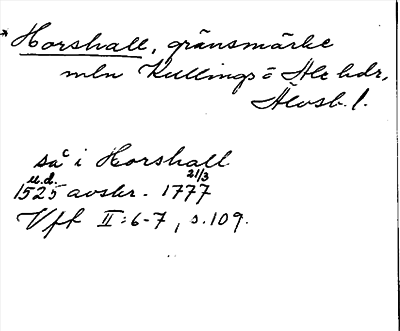 * Horshall, gränsmärke
mln Kullings o Ale hdr,
Älvsb. l.
så i Horshall
u.d. 21/3
1525 avskr. 1777
Vff II:6-7, s.109.